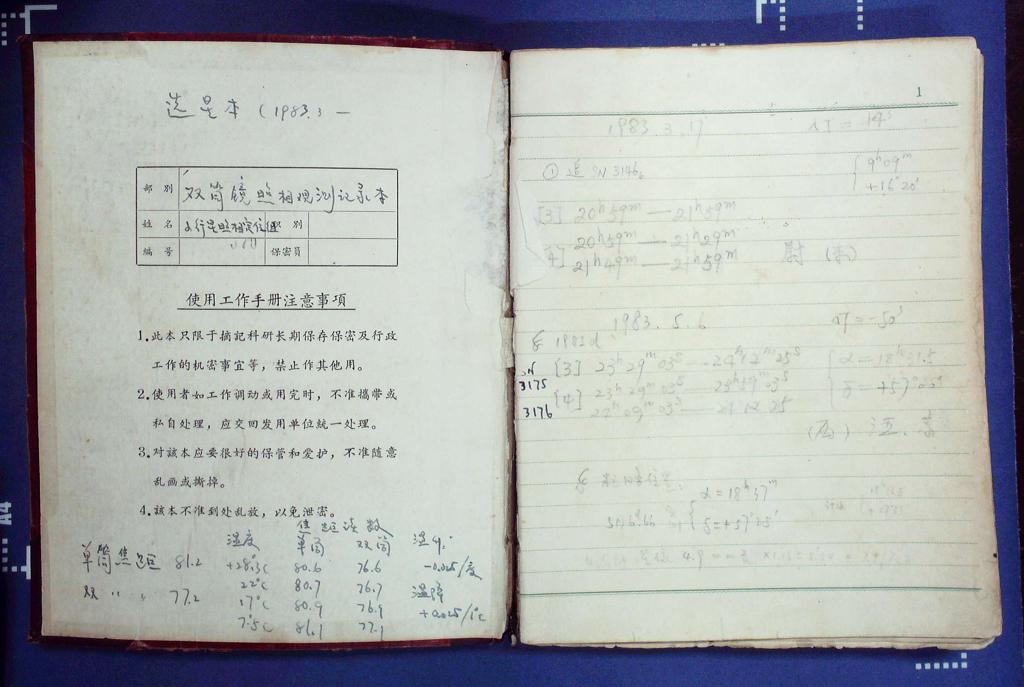 选星本 (1983.3 —
部别 双筒镜照相观测记录本
姓名 小行星照相定位组 职别
编号 保密員
使用工作手册注意事項
1.此本只限于摘記科研长期保存保密及行政
工作的机密事宜等，禁止作其他用。
2.使用者如工作调动或用完时，不准攜带或
私自处理，应交回发用单位統一处理。
3.对該本应妥很好的保管和爱护，不准随意
乱画或撕掉。
4.該本不准到处乱放，以免泄密。
焦距读数
温度 单筒 双筒 温升:
单筒焦距 81.2 +28.3℃ 80.6 76.6 -0.025/度
22℃ 80.7 76.7 温降
双 〃 〃 77.2 17℃ 80.9 76.9 +0.025/1℃
7.5℃ 81.1 77.1
1
1983.3.17 ΔT = 14ˢ
① 追 SN 3146。 9ʰ09ᵐ
+16°20'
[3] 20ʰ59ᵐ — 21ʰ59ᵐ
[4] 20ʰ59ᵐ — 21ʰ29ᵐ
21ʰ49ᵐ — 21ʰ59ᵐ
1983.5.6 ΔT = -50ˢ
1983d
SN 3175 [3] 23ʰ29ᵐ03ˢ — 24ʰ12ᵐ25ˢ α = 18ʰ31.5
3176 [4] 23ʰ29ᵐ03ˢ — 23ʰ59ᵐ03ˢ δ +57°
24ʰ09ᵐ03ˢ —
α = 18ʰ37ᵐ
δ = +57°25'